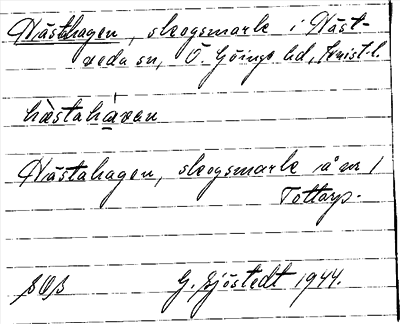 Hästhagen, skogsmark i Häst-
veda sn, Ö. Göinge hd, Krist. l.
hàstahávan
Hästahagen, skogsmark å nr 1
Tottarp.
G. Sjöstedt 1944.